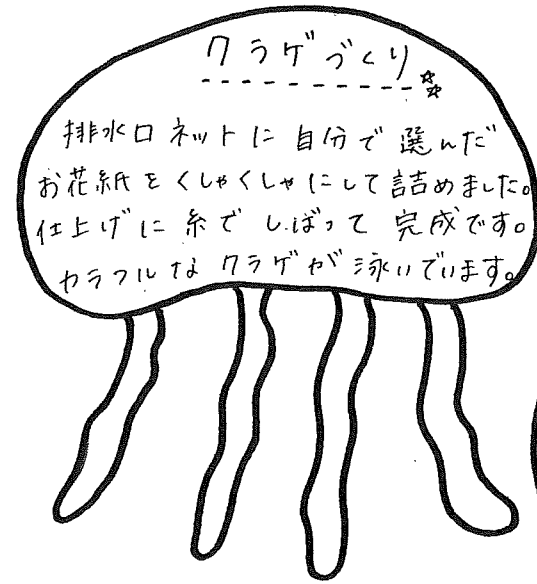 クラゲづくり
排水口ネットに自分で選んだ
お花紙をくしゃくしゃにして詰めました。
仕上げに糸でしばって完成です。
カラフルなクラゲが泳いでいます。